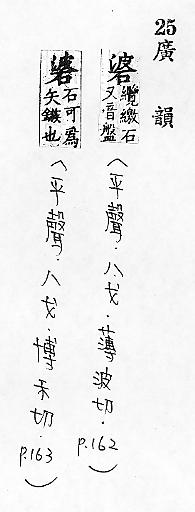 25
廣韻
䃺 纜繳石又音盤 （平聲．八戈．薄波切．p.162）
碆 石可為矢鏃也 （平聲．八戈．博禾切．p.163）